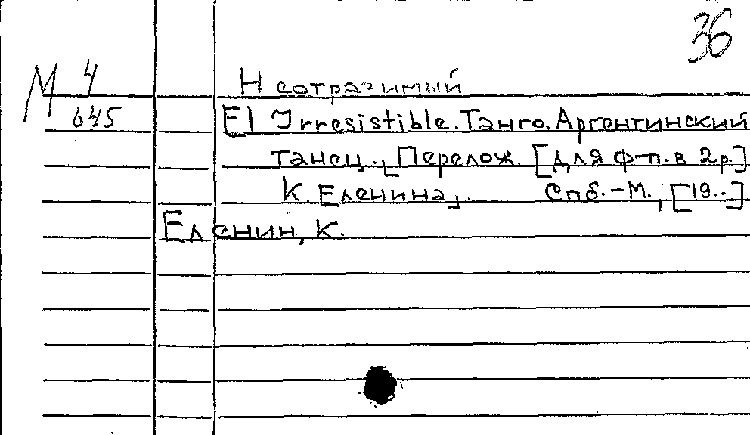 36
М 4
645
Неотразимый
El Irresistible. Танго. Аргентинский
танец. [Перелож. [для ф-п. в 2 р.]
К. Еленина]. Спб.-М., [19..]
Еленин, К.